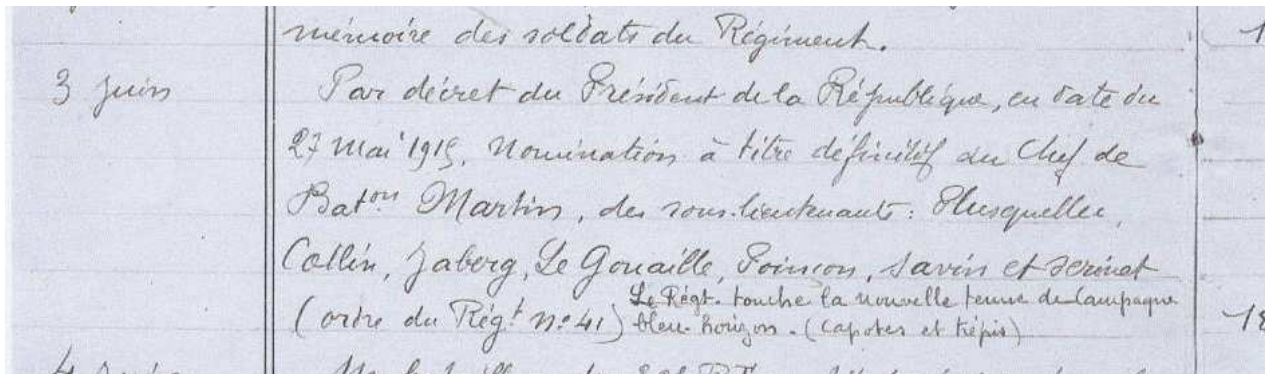 mémoire des soldats du Régiment.
3 juin
Par décret du Président de la République, en date du
27 Mai 1915, Nomination à titre définitif du Chef de
Bat.on Martin, des sous-lieutenants : Plusquellec,
Collin, Jaberg, Le Gouaille, Poinçon, Savin et Serinet
(ordre du Régt n° 41) Le Régt. touche la nouvelle tenue de campagne
bleu-horizon. (capotes et képis)
4 juin